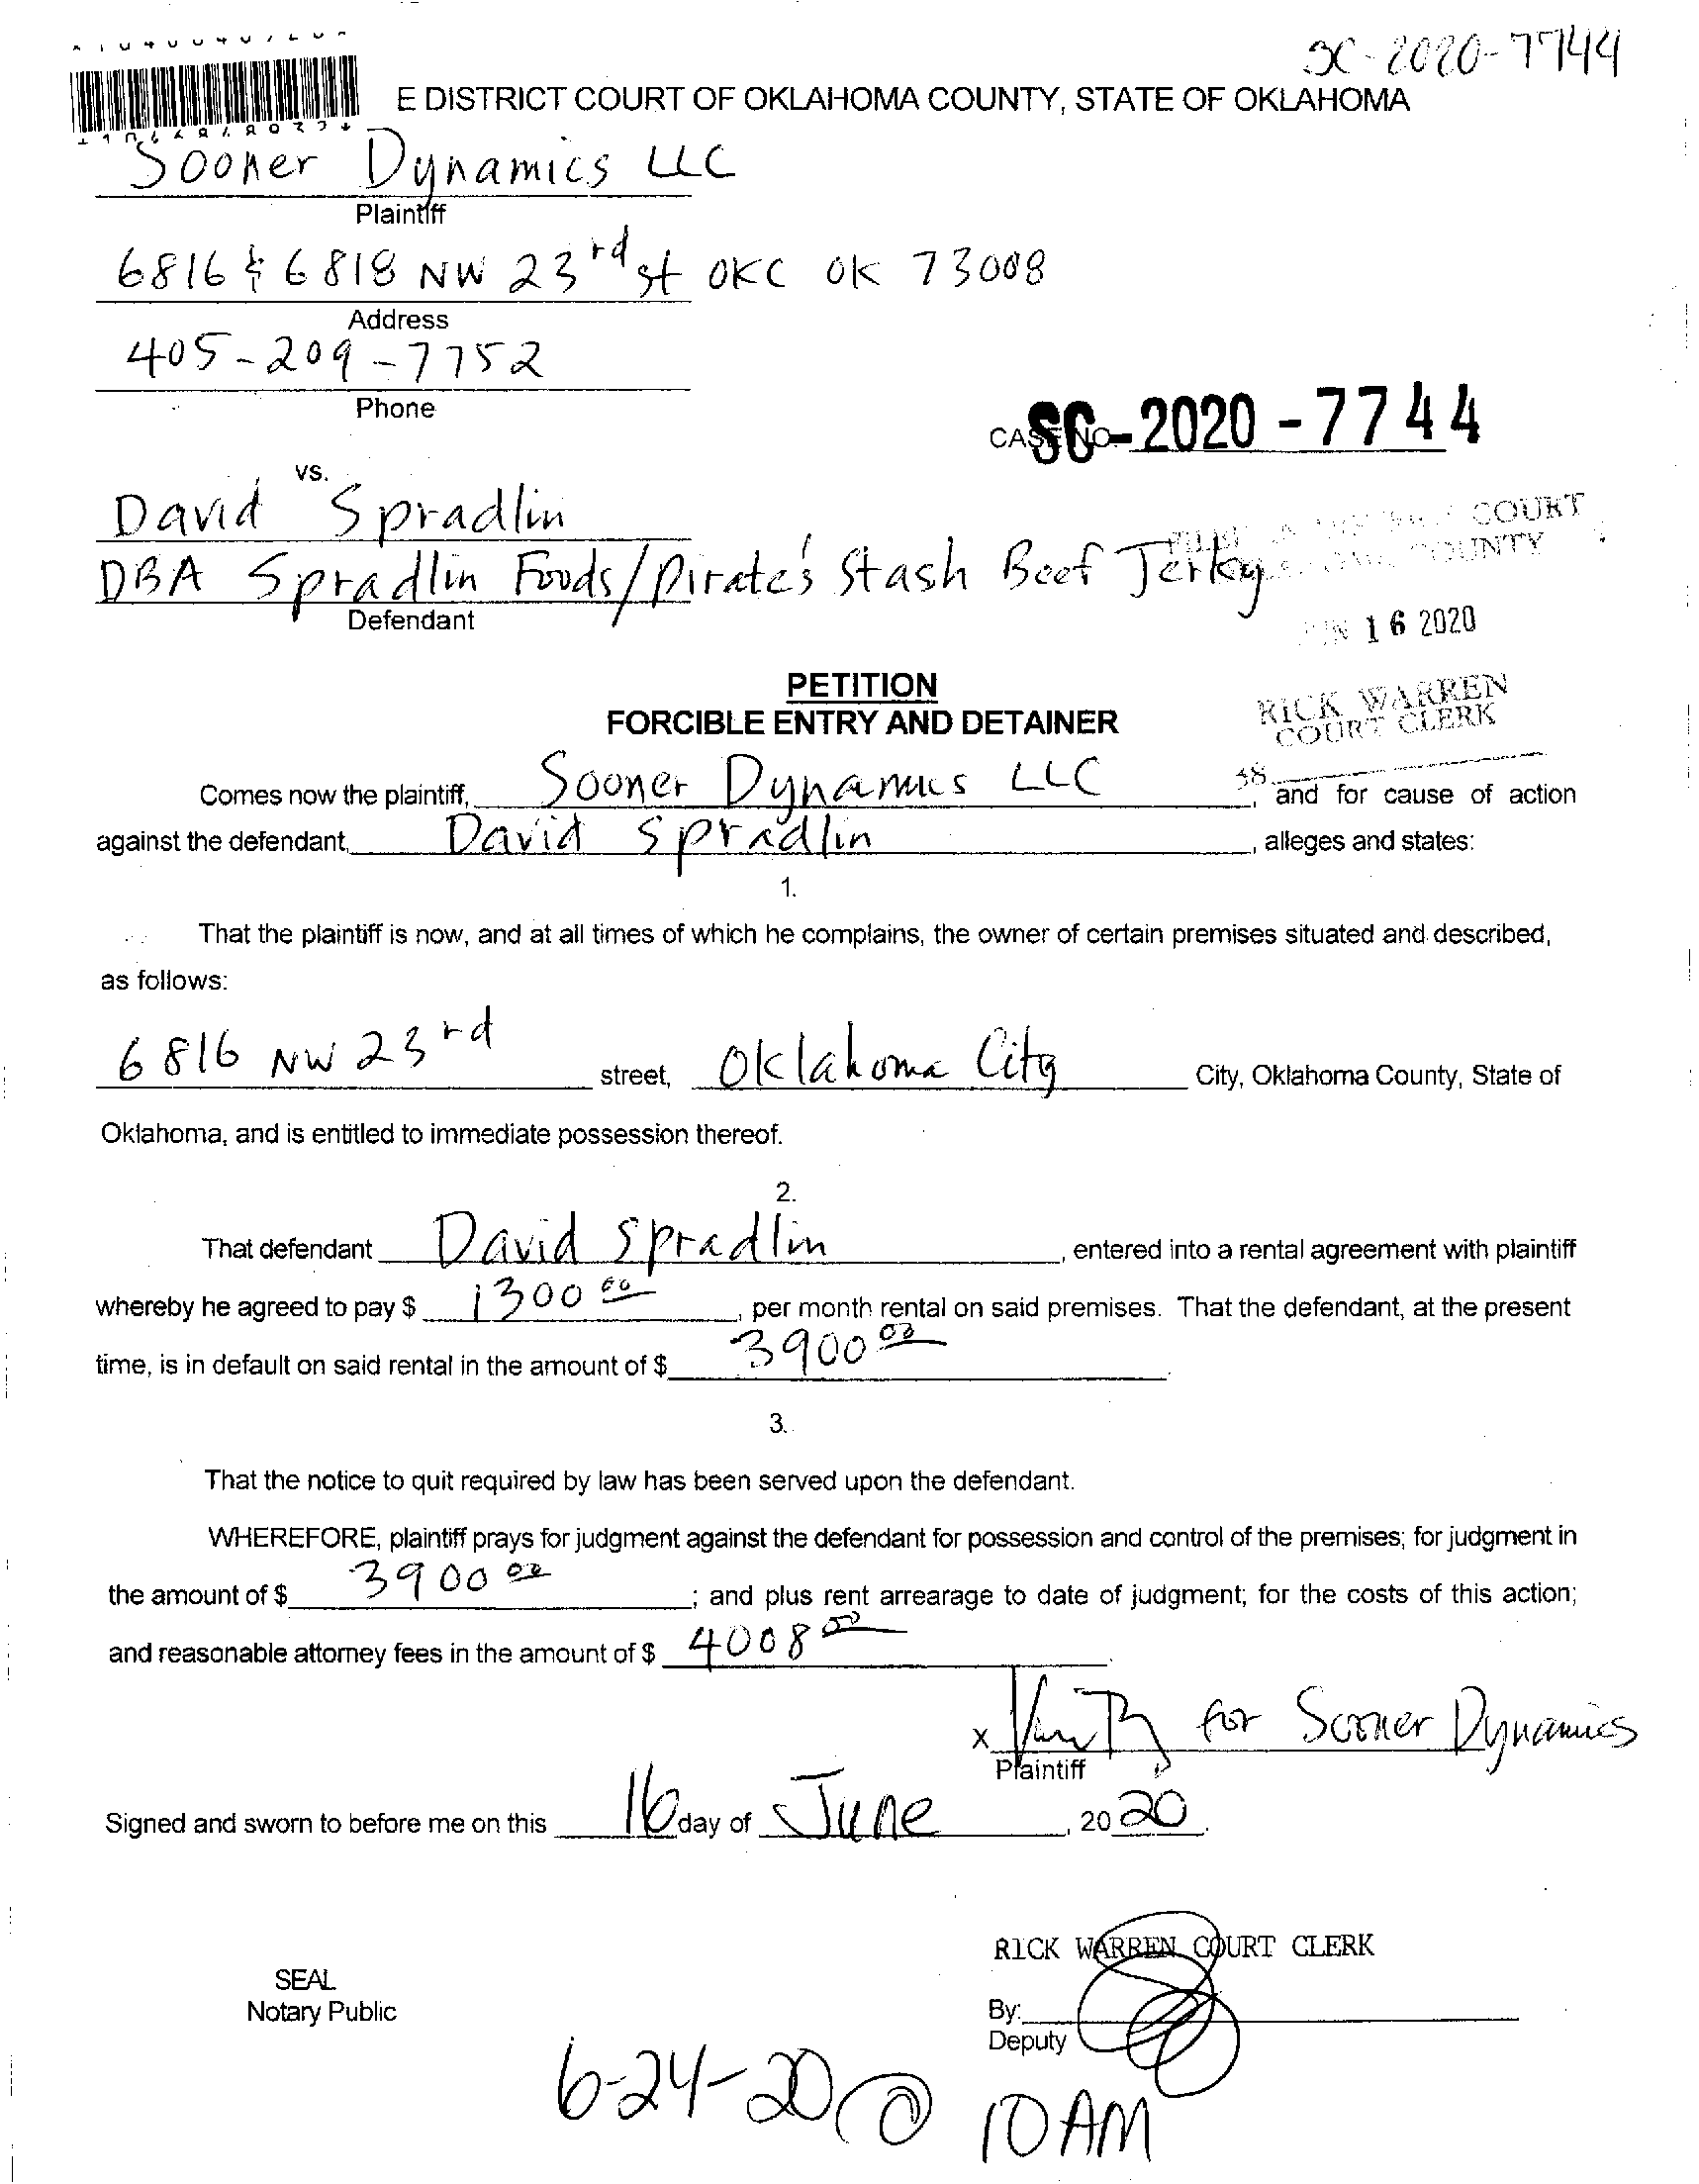 SC-2020-7744
E DISTRICT COURT OF OKLAHOMA COUNTY, STATE OF OKLAHOMA
Sooner Dynamics LLC
Plaintiff
6816 & 6818 NW 23rd st OKC OK 73008
Address
405-209-7752
Phone
CASE NO. SC-2020-7744
vs.
David Spradlin
DBA Spradlin Foods/Pirate's Stash Beef Jerky
Defendant
COURT
COUNTY
JUN 16 2020
PETITION
FORCIBLE ENTRY AND DETAINER
RICK WARREN
COURT CLERK
Comes now the plaintiff, Sooner Dynamics LLC, and for cause of action
against the defendant, David Spradlin, alleges and states:
1.
That the plaintiff is now, and at all times of which he complains, the owner of certain premises situated and described,
as follows:
6816 NW 23rd street, Oklahoma City City, Oklahoma County, State of
Oklahoma, and is entitled to immediate possession thereof.
2.
That defendant David Spradlin, entered into a rental agreement with plaintiff
whereby he agreed to pay $ 1300 00, per month rental on said premises. That the defendant, at the present
time, is in default on said rental in the amount of $ 3900 00.
3.
That the notice to quit required by law has been served upon the defendant.
WHEREFORE, plaintiff prays for judgment against the defendant for possession and control of the premises; for judgment in
the amount of $ 3900 00; and plus rent arrearage to date of judgment; for the costs of this action;
and reasonable attorney fees in the amount of $ 4008 00.
x for Sooner Dynamics
Plaintiff
Signed and sworn to before me on this 16 day of June, 2020.
RICK WARREN COURT CLERK
SEAL
Notary Public
By:
Deputy
6-24-20 @ 10 AM